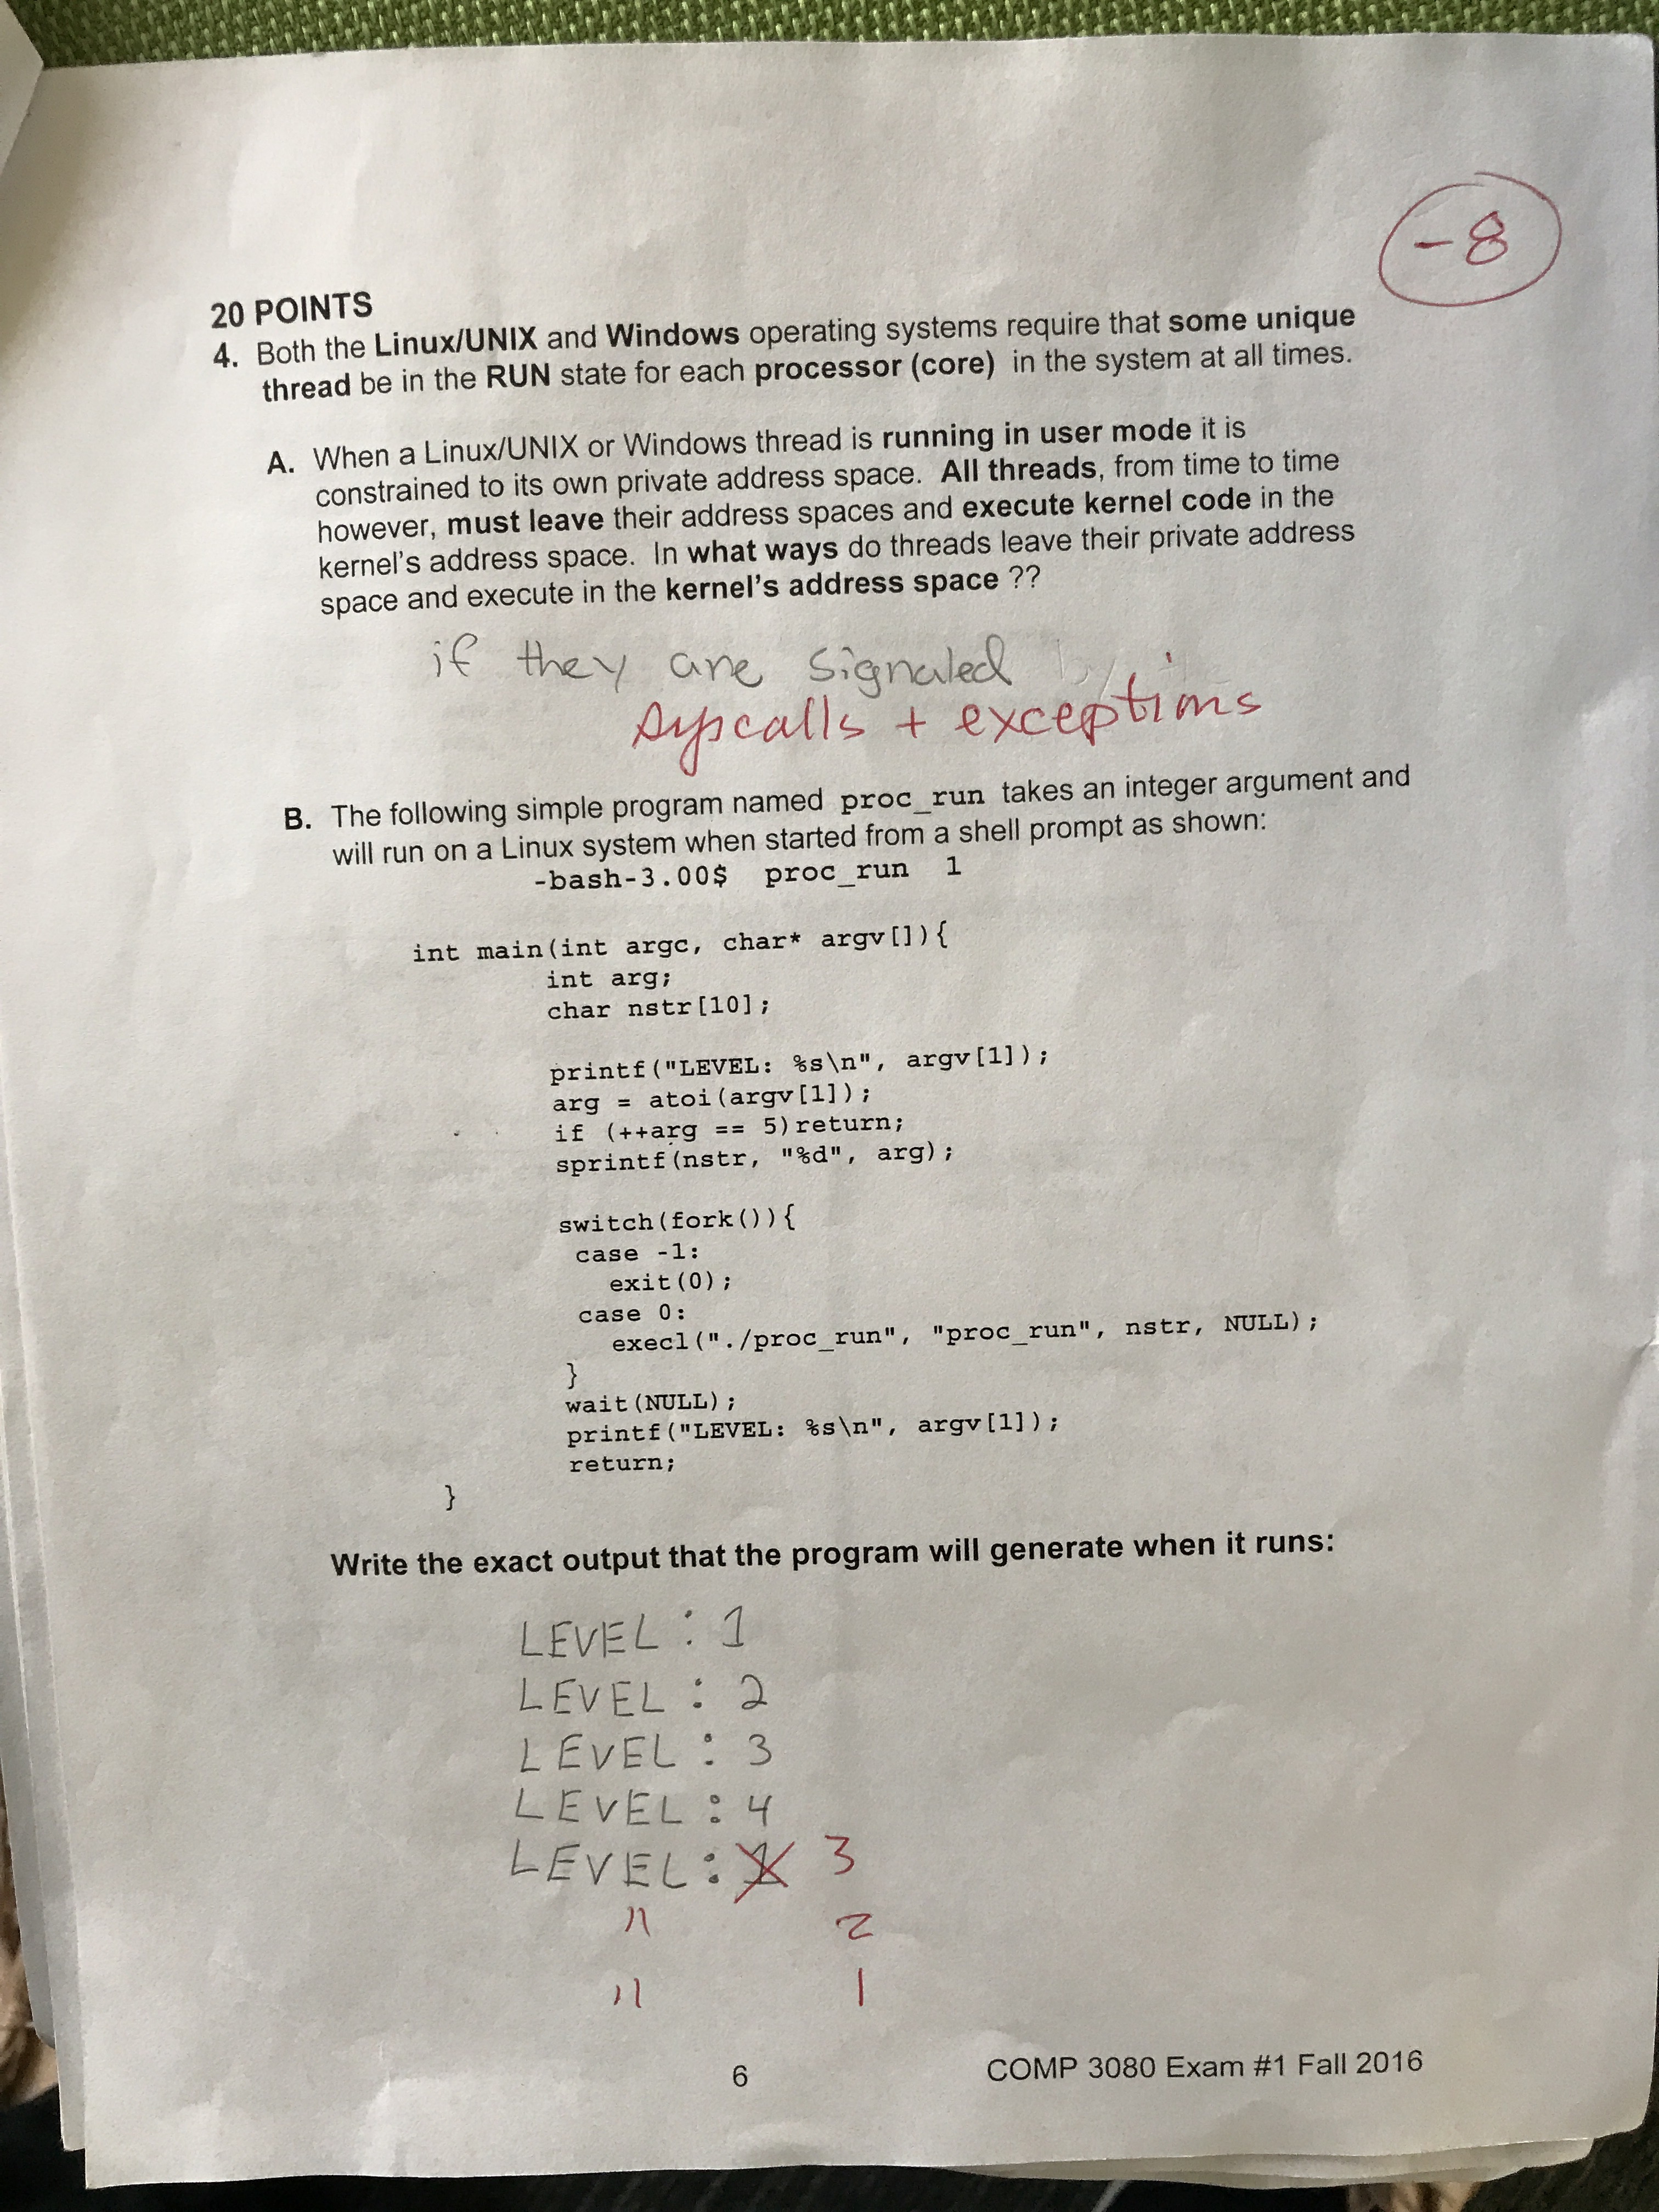 -8
20 POINTS
4. Both the Linux/UNIX and Windows operating systems require that some unique
thread be in the RUN state for each processor (core) in the system at all times.
A. When a Linux/UNIX or Windows thread is running in user mode it is
constrained to its own private address space. All threads, from time to time
however, must leave their address spaces and execute kernel code in the
kernel's address space. In what ways do threads leave their private address
space and execute in the kernel's address space ??
if they are signaled
syscalls + exceptions
B. The following simple program named proc_run takes an integer argument and
will run on a Linux system when started from a shell prompt as shown:
-bash-3.00$ proc_run 1
int main(int argc, char* argv[]){
int arg;
char nstr[10];
printf("LEVEL: %s\n", argv[1]);
arg = atoi(argv[1]);
if (++arg == 5)return;
sprintf(nstr, "%d", arg);
switch(fork()){
case -1:
exit(0);
case 0:
execl("./proc_run", "proc_run", nstr, NULL);
}
wait(NULL);
printf("LEVEL: %s\n", argv[1]);
return;
}
Write the exact output that the program will generate when it runs:
LEVEL: 1
LEVEL: 2
LEVEL: 3
LEVEL: 4
LEVEL: 1 3
" 2
" 1
6 COMP 3080 Exam #1 Fall 2016